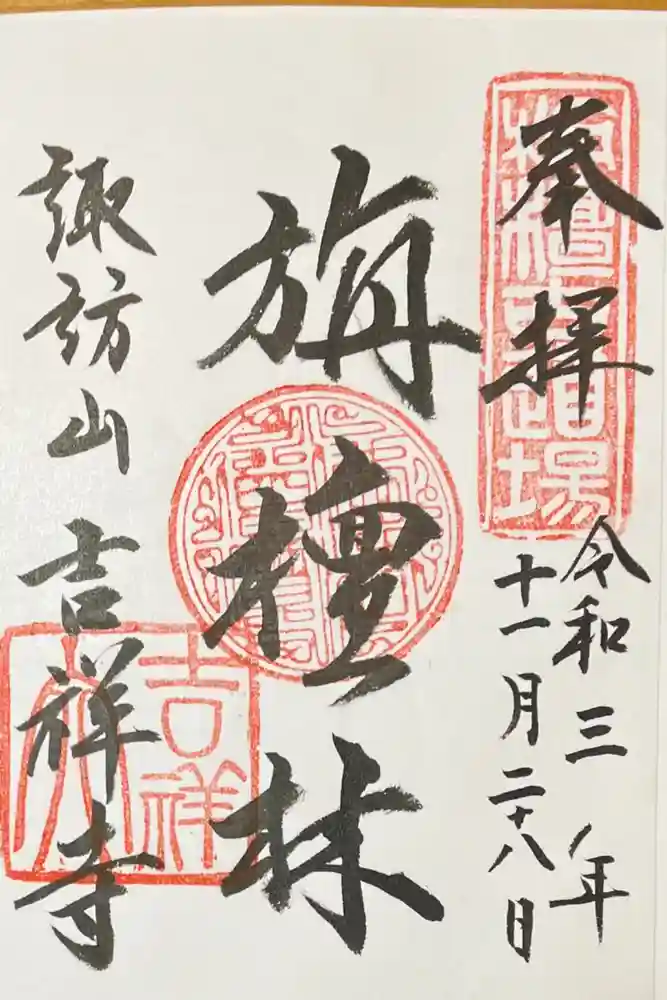 奉拝
令和三年
十一月二十八日
旃檀林
諏訪山吉祥寺
吉祥